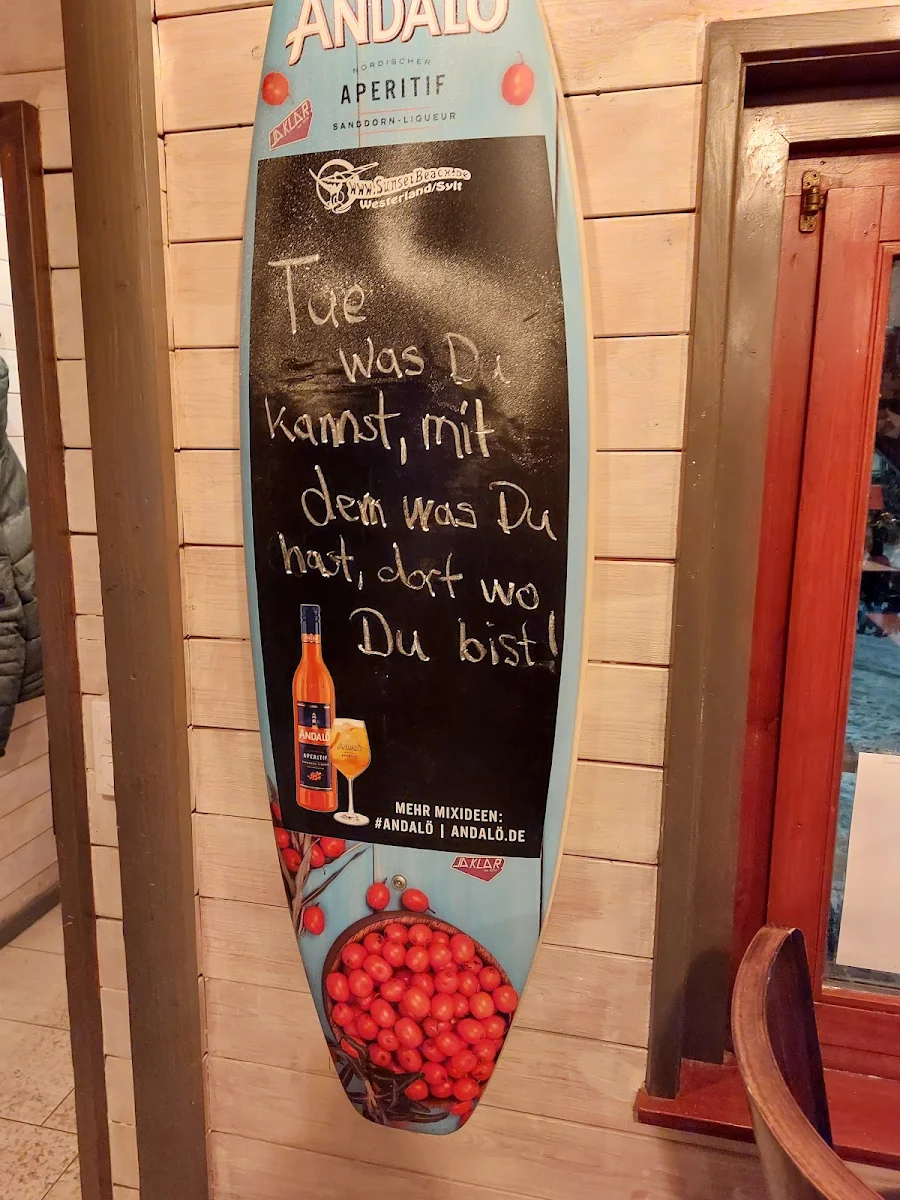 ANDALÖ
NORDISCHER
APERITIF
SANDDORN-LIQUEUR
JAKLAR
www.SunsetBeach.de
Westerland/Sylt
Tue
was Du
kannst, mit
dem was Du
hast, dort wo
Du bist!
ANDALÖ
APERITIF
MEHR MIXIDEEN:
#ANDALÖ | ANDALÖ.DE
JAKLAR